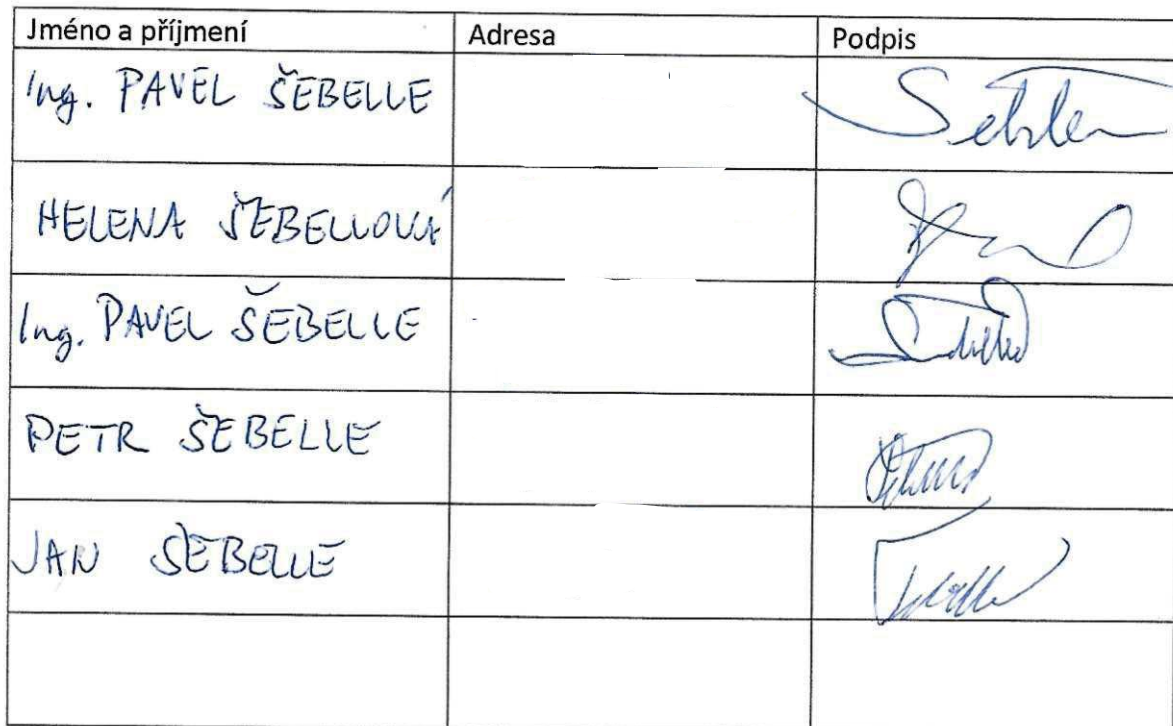 Jméno a příjmení Adresa Podpis
Ing. PAVEL ŠEBELLE
HELENA ŠEBELLOVÁ
Ing. PAVEL ŠEBELLE
PETR ŠEBELLE
JAN ŠEBELLE